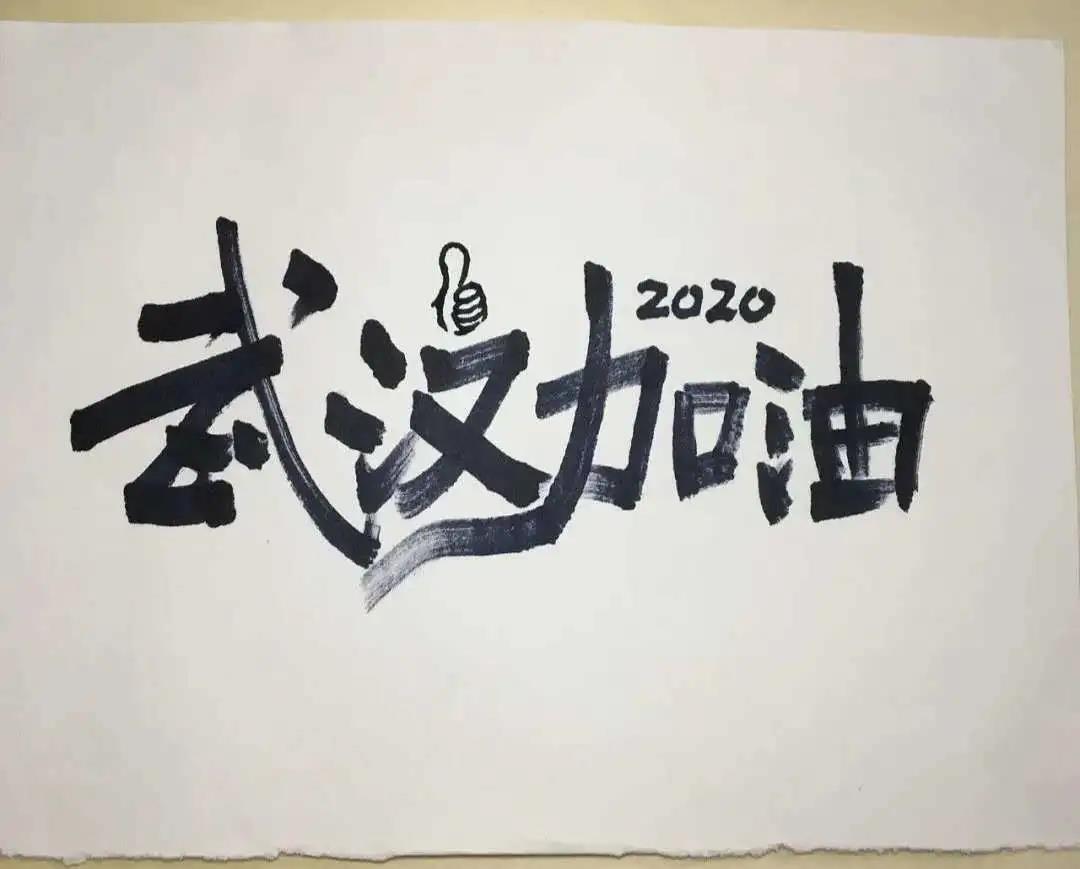 武汉加油
2020